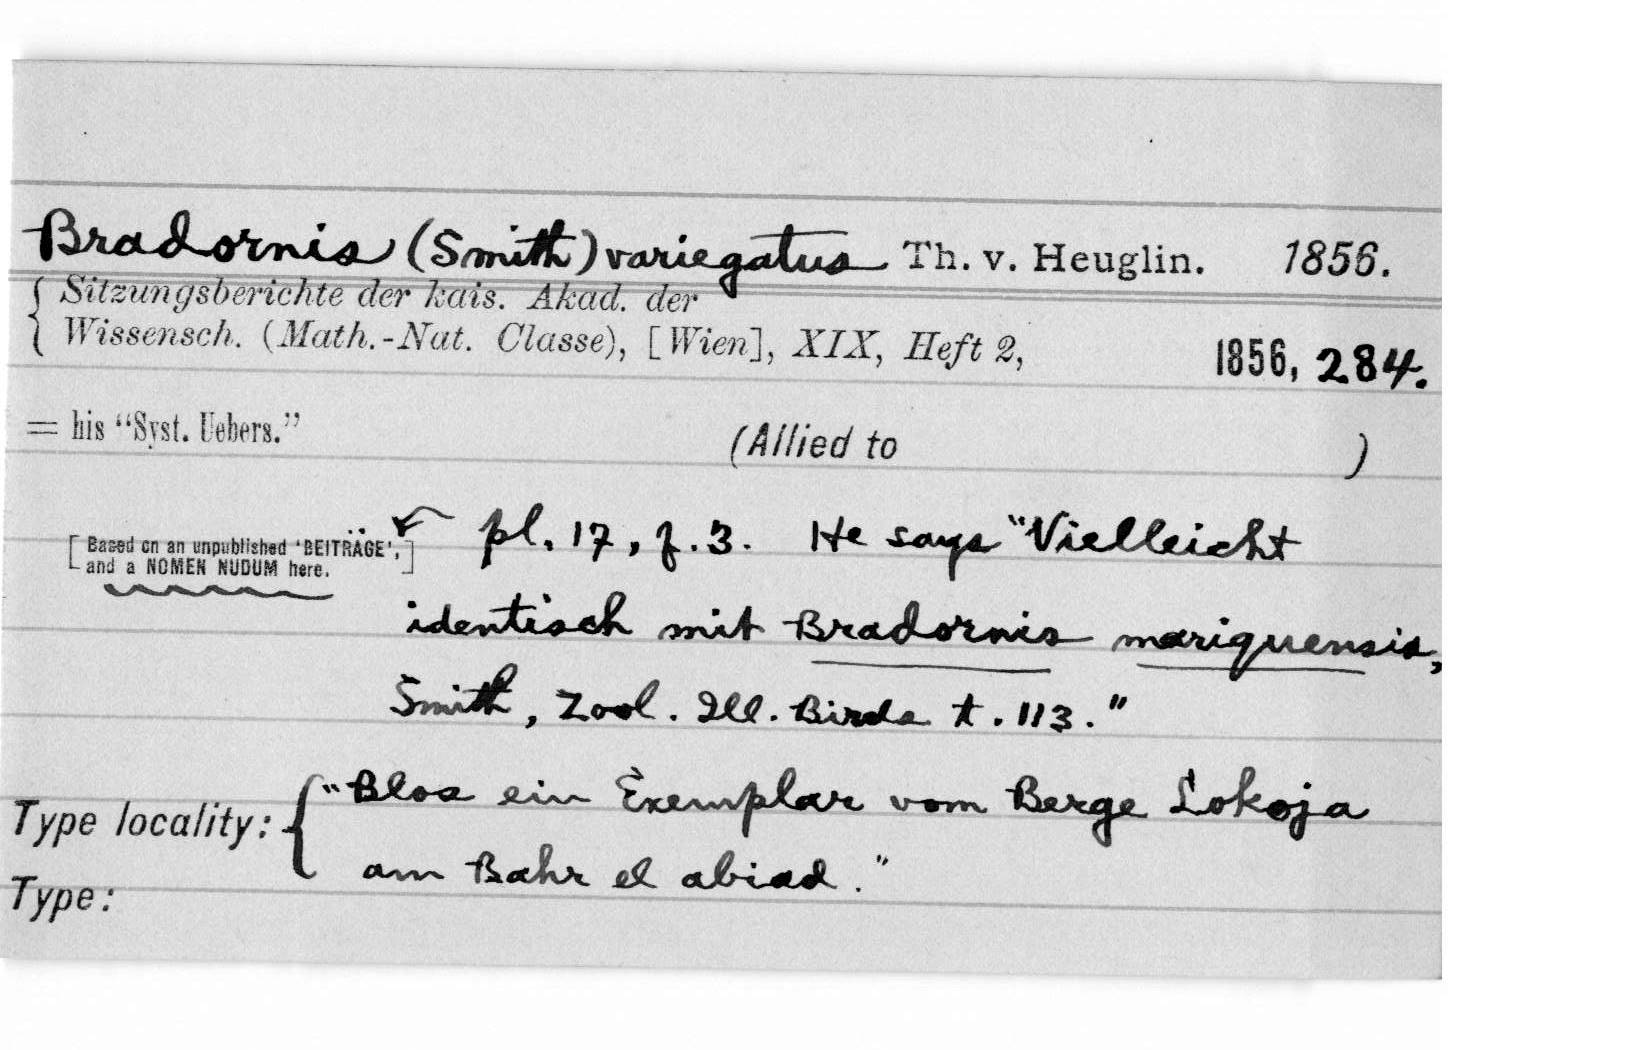 Bradornis (Smith) variegatus Th. v. Heuglin. 1856.
Sitzungsberichte der kais. Akad. der
Wissensch. (Math.-Nat. Classe), [Wien], XIX, Heft 2, 1856, 284.
= his “Syst. Uebers.” (Allied to )
[Based on an unpublished ‘BEITRÄGE’, pl. 17, f. 3. He says "Vielleicht
and a NOMEN NUDUM here.]
identisch mit Bradornis mariquensis,
Smith, Zool. Ill. Birds t. 113."
Type locality: { "Blos ein Exemplar vom Berge Lokoja
am Bahr el abiad."
Type: